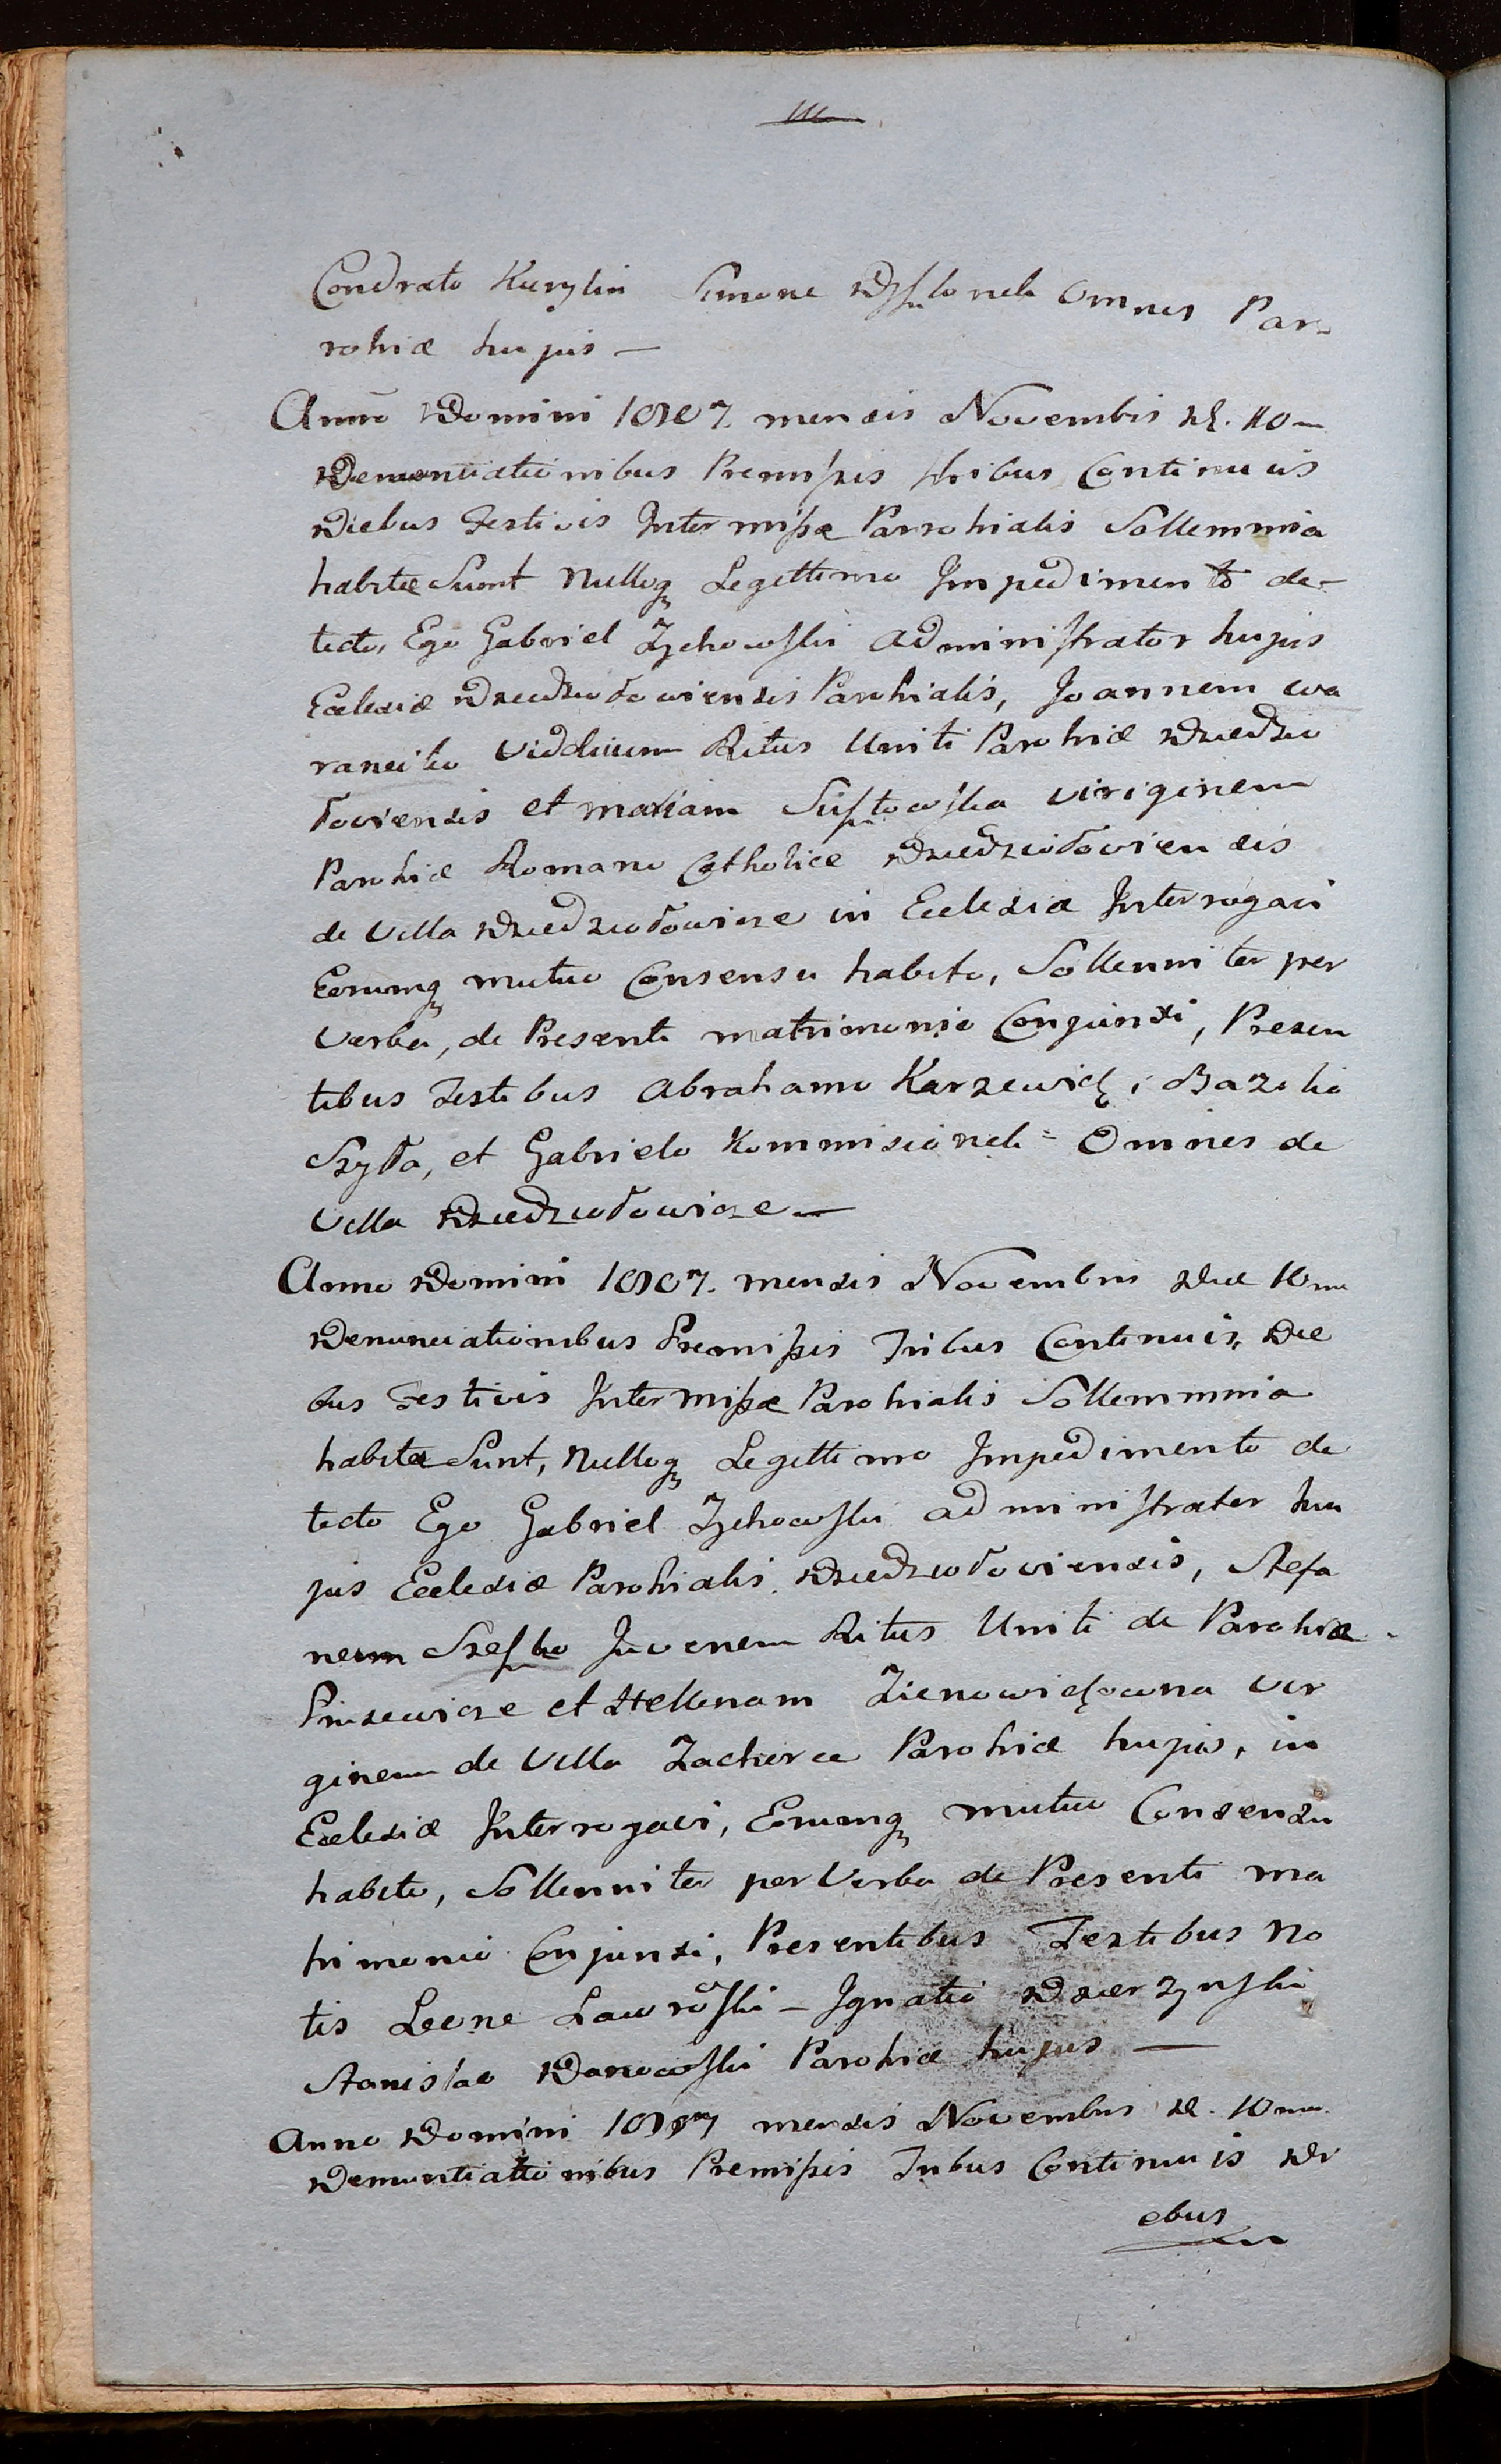 Condrato Kurylin Simone Omnes Par-
rohiæ hujus —
Anno Domini 1807 mensis Novembris d. 10 m
Denuntiationibus Premissis tribus Continuis
Diebus Festivis Inter missæ Parrohialis Sollemnia
habitæ Sunt Nulloq Legettimo Impedimento de-
tecto, Ego Gabriel Zychowski Administrator hujus
Eclesiæ Dziedziołoviensis Parohialis, Joannem Wa
raneiko Vidduum Ritus Uniti Parohiæ Dziedzio
łoviensis et mariam viriginem
Parohiæ Romano Catholicæ Dziedziołoviensis
de Villa Dziedziołowicze in Eclesiæ Interrogavi
Eorumq mutuo Consensu habito, Sollenniter per
Verba, de Presente matrimonio Conjunxi, Presen
tibus Testibus Abrahamo Karzewicz, Bazilio
Szyła, et Gabrielo Kommisionek = Omnes de
Villa Dziedziołowicze —
Anno Domini 1807. mensis Novembris Die 10 ma
Denunciationibus Premissis Tribus Continuis, Die
bus Festivis Inter Missæ Parohialis Sollemnnia
habitæ Sunt, Nulloq Legettimo Impedimento de
tecto Ego Gabriel Zychowski administrator hu
jus Eclesiæ Parohialis Dziedziołoviensis, Stefa
num Szesko Juvenem Ritus Uniti de Parohiæ
Pinsewicze et Hellenam Zienowiczowna Vir
ginem de Villa Zacherce Parohiæ hujus, in
Eclesiæ Interrogavi, Eorumq mutuo Consensu
habito, Sollenniter per Verba de Presenti ma
trimonio Conjunxi, Presentibus Testibus No
tis Leone Lawroski — Ignatio Dzierzynski
Stanislao Danowski Parohiæ hujus —
Anno Domini 1807 mensis Novembris d. 10 ma.
Denuntiationibus Premissis Tribus Continuis Di
ebus